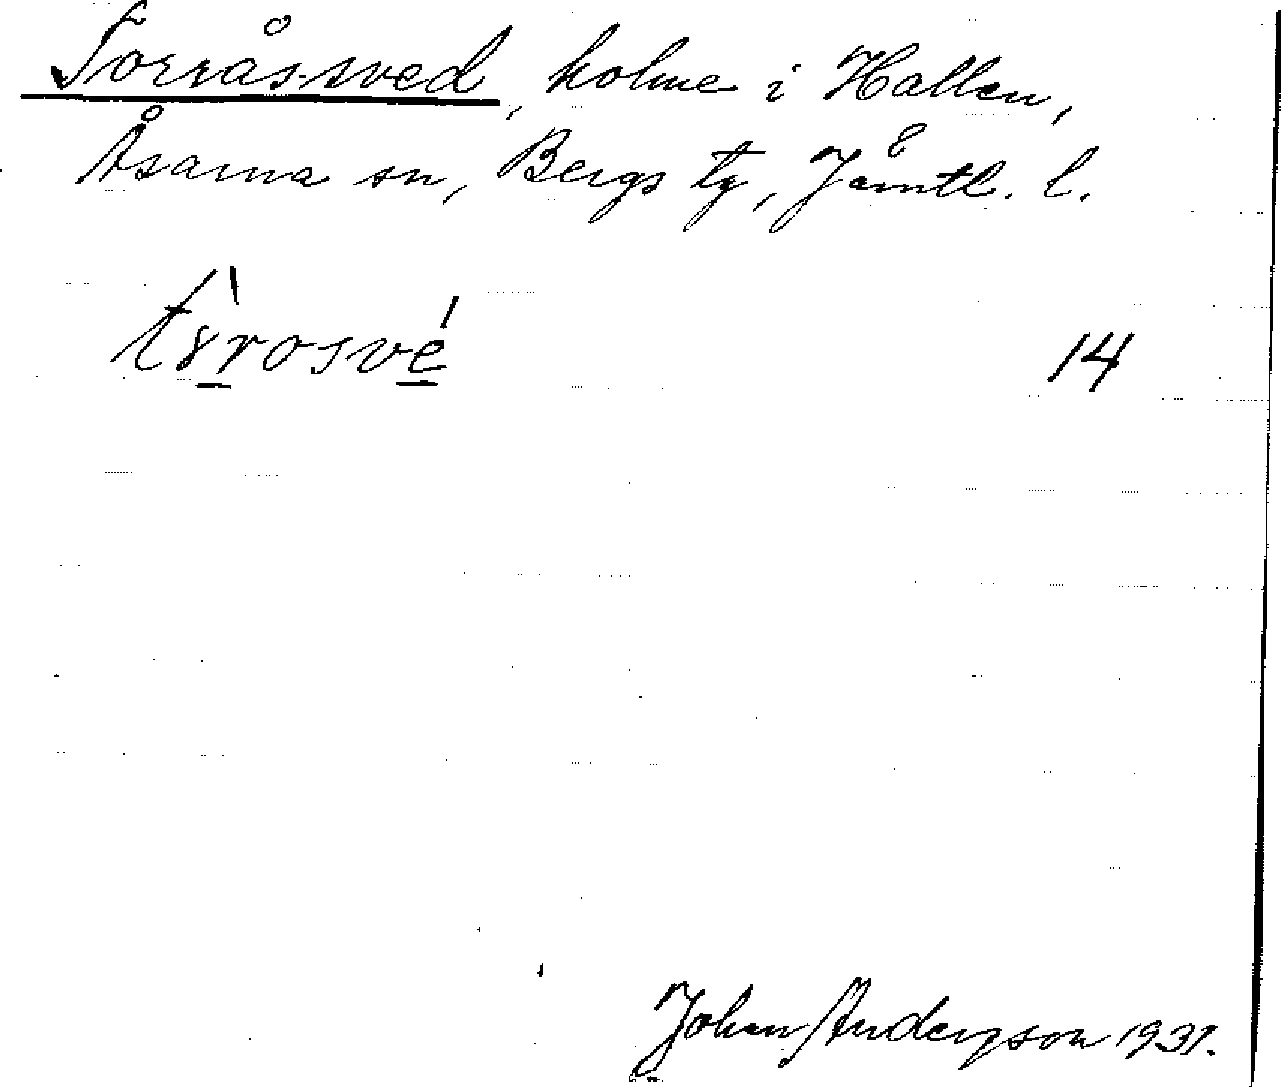 Torråssved, holme i Hallen,
Åsarna sn, Bergs tg, Jämtl. l.
14
Johan Andersson 1931.